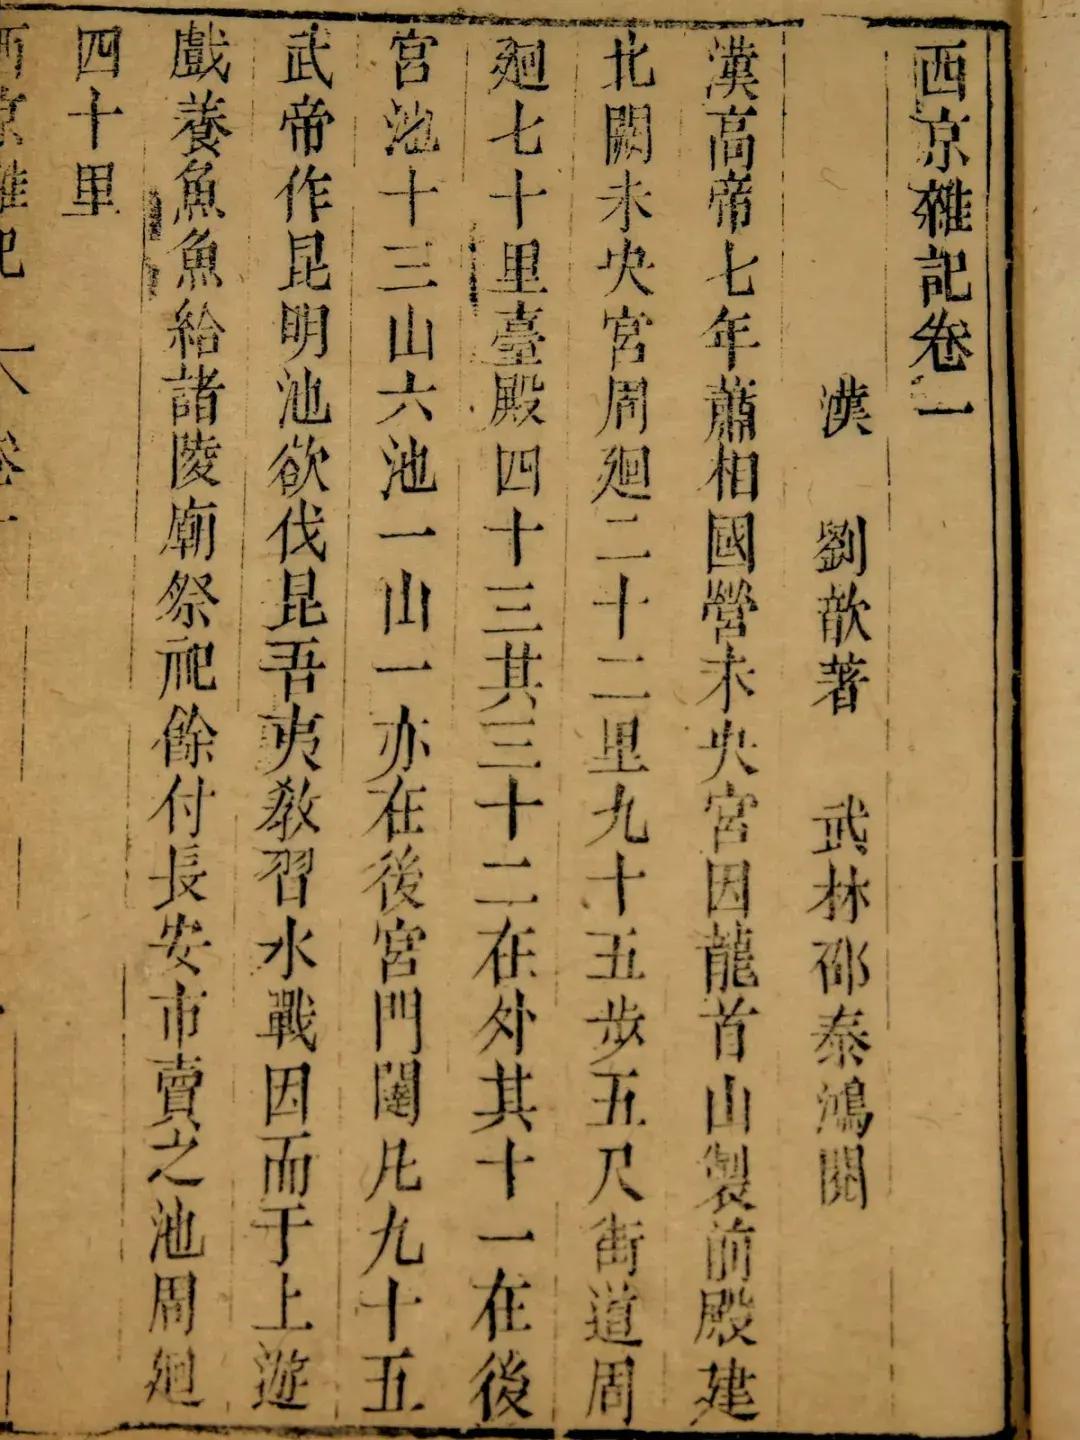 西京雜記卷一
漢 劉歆著 武林邵泰鴻閱
漢高帝七年蕭相國營未央宮因龍首山製前殿建
北闕未央宮周廻二十二里九十五步五尺街道周
廻七十里臺殿四十三其三十二在外其十一在後
宮池十三山六池一山一亦在後宮門闥凡九十五
武帝作昆明池欲伐昆吾夷敎習水戰因而于上遊
戲養魚魚給諸陵廟祭祀餘付長安市賣之池周廻
四十里
西京雜記 卷一